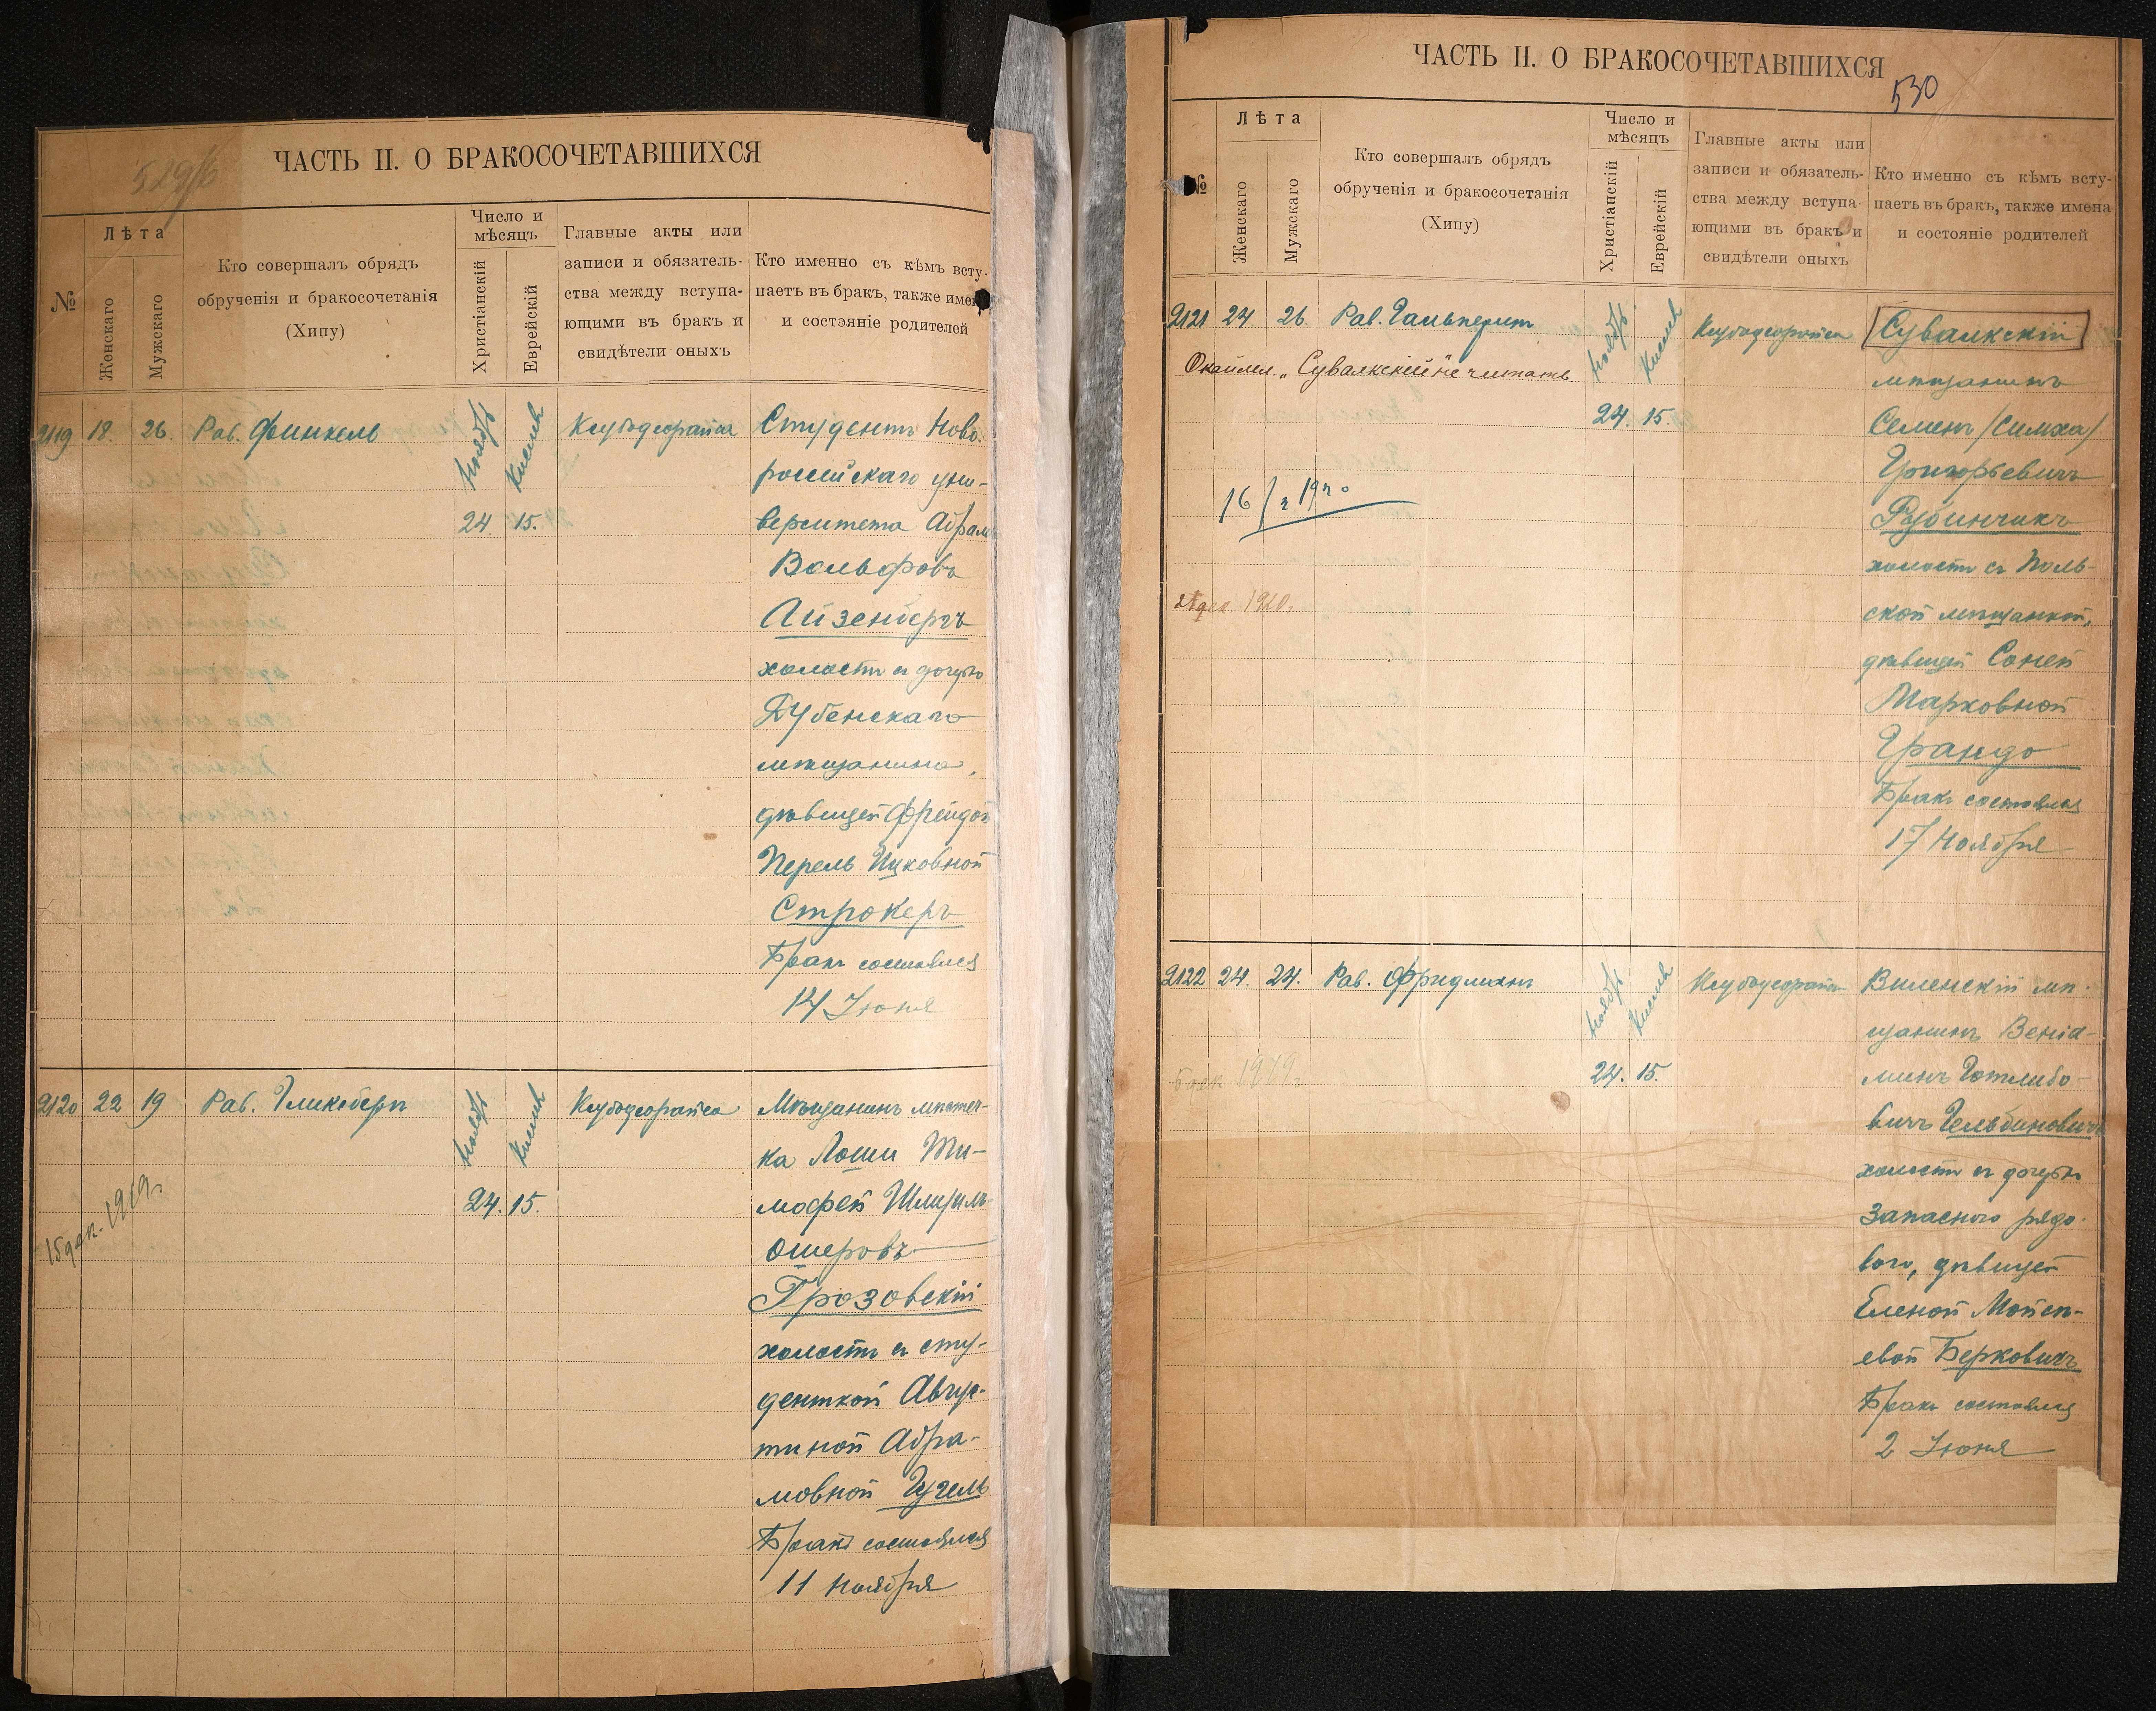 529/б
ЧАСТЬ II. О БРАКОСОЧЕТАВШИХСЯ
№
Лѣта
Женскаго
Мужскаго
Кто совершалъ обрядъ
обрученія и бракосочетанія
(Хипу)
Число и
мѣсяцъ
Христіанскій
Еврейскій
Главные акты или
записи и обязатель-
ства между вступа-
ющими въ бракъ и
свидѣтели оныхъ
Кто именно съ кѣмъ всту-
паетъ въ бракъ, также имен
и состэяніе родителей
2119 18. 26. Рав. Финкель
Ноябрь
Кислев
24. 15.
Студентъ Ново-
россійскаго уни-
верситета Абрам
Вольфовъ
Айзенбергъ
холостъ съ дочерью
Дубенскаго
мѣщанина,
дѣвицей Фрейдой
Перель Ицковной
Строкеръ
Бракъ состоялся
14 Іюня
2120 22 19 Рав. Гликсберг
Ноябрь
Кислев
24. 15.
15 дек. 1919 г.
Мѣщанинъ мѣстеч-
ка Лоши Ти-
мофей Шмуиль-
Ошеровъ
Грозовскій
холостъ съ сту-
денткой Авгус-
тиной Абра-
мовной Гугель
Бракъ состоялся
11 Ноября
530
ЧАСТЬ II. О БРАКОСОЧЕТАВШИХСЯ
№
Лѣта
Женскаго
Мужскаго
Кто совершалъ обрядъ
обрученія и бракосочетанія
(Хипу)
Число и
мѣсяцъ
Христіанскій
Еврейскій
Главные акты или
записи и обязатель-
ства между вступа-
ющими въ бракъ и
свидѣтели оныхъ
Кто именно съ кѣмъ всту-
паетъ въ бракъ, также имена
и состояніе родителей
2121 24 26. Рав. Гальперин
Окаймл. „Сувалкскій" не читать
Ноябрь
Кислев
24. 15.
дек. 1920.
Сувалкскій
мѣщанинъ
Семенъ /Симха/
Григорьевичъ
Рубинчикъ
холостъ съ Поль-
ской мѣщанкой,
дѣвицей Соней
Марковной
Грандо
Бракъ состоялся
17 Ноября
2122 24. 24. Рав. Фридман
Ноябрь
Кислев
24. 15.
Виленскій мѣ-
щанинъ Веніа-
минъ Готлибо-
вичъ Гельбиновичъ
холостъ съ дочерью
Запасного рядо-
вого, дѣвицей
Еленой Мойсе-
евой Берковичъ
Бракъ состоялся
2 Іюня